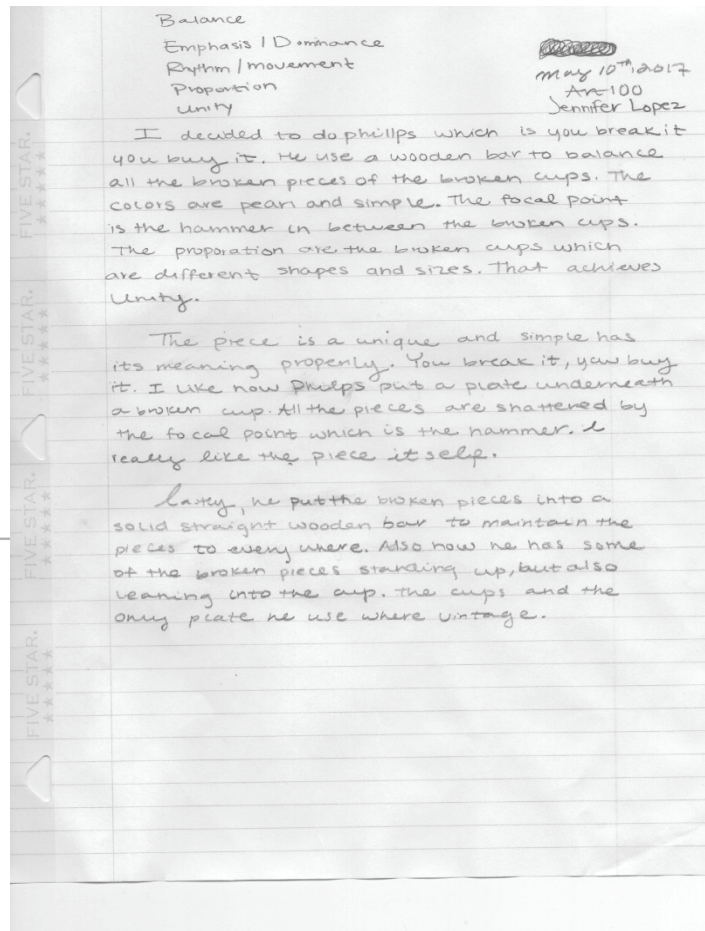 Balance
Emphasis / Dominance
Rhythm / movement
Proportion
Unity
May 10TH, 2017
Art 100
Jennifer Lopez
I decided to do phillps which is you break it
you buy it. He use a wooden bar to balance
all the broken pieces of the broken cups. The
colors are pearl and simple. The focal point
is the hammer in between the broken cups.
The proporation are the broken cups which
are different shapes and sizes. That achieves
Unity.
The piece is a unique and simple has
its meaning properly. You break it, you buy
it. I like how Philps put a plate underneath
a broken cup. All the pieces are shattered by
the focal point which is the hammer. I
really like the piece itself.
lastly, he put the broken pieces into a
solid straight wooden bar to maintain the
pieces to every where. Also how he has some
of the broken pieces standing up, but also
leaning into the cup. the cups and the
only plate he use where vintage.
FIVE STAR.
FIVE STAR.
FIVE STAR.
FIVE STAR.